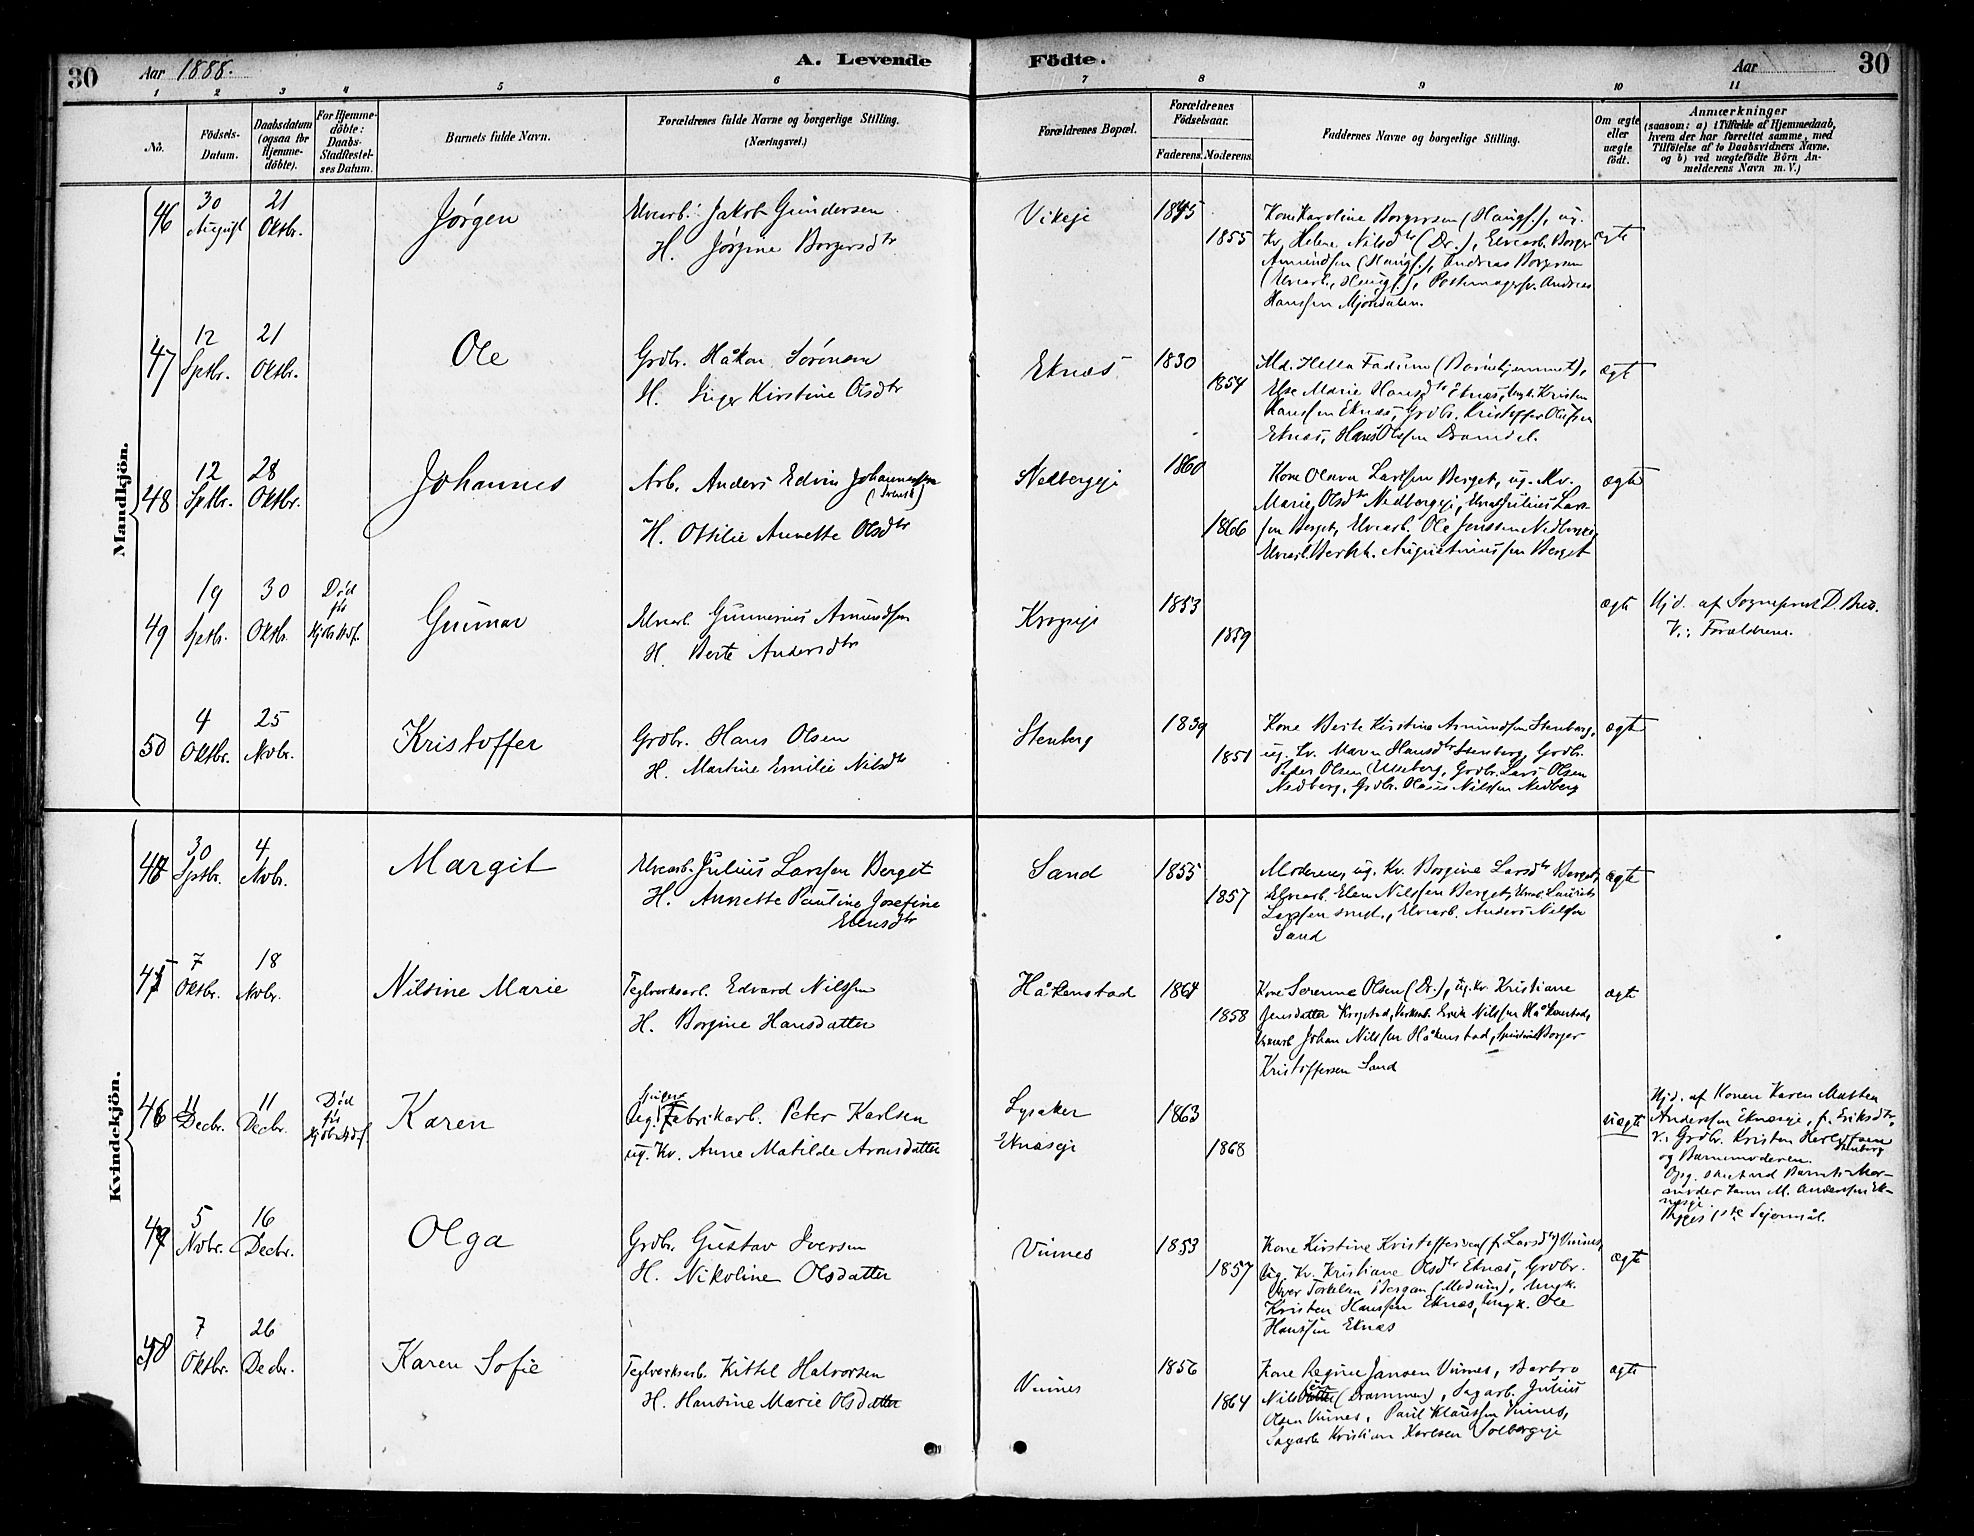 30 Aar 1888. A. Levende Födte. Aar 30
1 2 3 4 5 6 7 8 9 10 11
No. Födsels-Datum. Daabsdatum (ogsaa for Hjemmedöbte). For Hjemmedöbte: Daabs-Stadfæstelses Datum. Barnets fulde Navn. Forældrenes fulde Navne og borgerlige Stilling. (Næringsvei.) Forældrenes Bopæl. Forældrenes Födselsaar. Faderens. Moderens. Faddernes Navne og borgerlige Stilling. Om ægte eller uægte födt. Anmærkninger
(saasom: a) i Tilfælde af Hjemmedaab,
hvem der har forrettet samme, med
Tilföielse af to Daabsvidners Navne.
og b) ved uægtefödte Börn An-
melderens Navn m. V.)
Mandkjön.
46 30 August 21 Oktbr. Jørgen
Elvearb. Jakob Gundersen
H. Jørgine Borgersdtr
Vikeje 1845 1855
Kone Karoline Borgersen (Haugs.), ug.
Kv. Helene Nilsdtr (Dr.), Elvearb. Borger
Amundsen (Haugs.), Andreas Borgersen
(Elvearb., Haugs.), Andreas
Hanssen Mjøndalen.
ægte
47 12 Sptbr. 21 Oktbr. Ole
Grdbr. Håkon Sørensen
H. Inger Kirstine Olsdtr
Eknæs 1830 1854
Md. Hella Fadum (Børnehjemmet),
Else Marie Hansdtr Eknæs, Ungk. Kristen
Hanssen Eknæs, Grdbr. Kristoffer Olufsen
Eknæs, Hans Olssen
ægte
48 12 Sptbr. 28 Oktbr. Johannes
Arb. Anders Edvin Johannessen
(svensk)
H. Ottilie Annette Olsdtr
Nedbergeje 1860 1866
Kone Olava Larssen Berget, ug. Kv.
Marie Olsdtr Nedbergeje, Elvearb. Julius Lars-
sen Berget, Elvearb. Ole Jenssen Nedbergeje,
Elvearb. Augustinussen Berget
ægte
49 19 Sptbr. 30 Oktbr. Død
før
Kjdbstdf.
Gunnar
Elvearb. Gunnerius Amundsen
H. Berte Andersdtr
Krogseje 1853 1859
ægte
Hjd. af Sogneprest D. Bra.
V.: Forældrene.
50 4 Oktbr. 25 Novbr. Kristoffer
Grdbr. Hans Olsen
H. Martine Emilie Nilsdtr
Stenberg 1839 1851
Kone Berte Kirstine Amundsen Stenberg,
ug. Kv. Maren Hansdtr Stenberg, Grdbr.
Peder Olsen Ulleberg, Grdbr. Lars Olsen
Nedberg, Grdbr. Nilssen Nedberg
ægte
Kvindekjön.
44 30 Sptbr. 4 Novbr. Margit
Elvearb. Julius Larssen Berget
H. Annette Pauline Josefine
Elensdtr
Sand 1855 1857
Moderen, ug. Kv. Borgine Larsdtr Berget,
Elvearb. Elen Nilssen Berget, Elvearb. Laurits
Larssen smst., Elvearb. Anders Nilssen
Sand
ægte
45 7 Oktbr. 18 Novbr. Nilsine Marie
Teglverksarb. Edvard Nilssen
H. Borgine Hansdatter
Håkenstad 1864 1858
Kone Serenne Olsen (Dr.), ug. Kv. Kristiane
Jensdatter Krogstad, Verksarb. Erik Nilssen Håkenstad,
Elvearb. Johan Nilssen Håkenstad, Borger
Kristoffersen Sand
ægte
46 11 Decbr. 11 Decbr. Død
før
Kjdbstdf
Karen
Ug. Fabrikarb. Peter Karlsen
ug. Kv. Anne Matilde Arnesdatter
Lysaker
Eknæseje
1863 1868
uægte
Hjd. af Konen Karen Mathea
Anderssen Eknæseje, f. Eriksdtr,
V.: Grdbr. Kristen
Stenberg
og Barnemoderen.
Opg. Barnets Mor-
moder M. Anderssen Ek-
næseje
1ste Lejermål.
47 5 Novbr. 16 Decbr. Olga
Grdbr. Gustav Iversen
H. Nikoline Olsdatter
Vinnes 1853 1857
Kone Kirstine Kristoffersen (f. Larsdtr) Vinnes,
ug. Kv. Kristiane Olsdtr Eknæs, Grdbr.
Iver Torkelsen Bergan (Modum), Ungk.
Kristen Hanssen Eknæs, Ungk. Ole
Hanssen Eknæs
ægte
48 7 Oktbr. 26 Decbr. Karen Sofie
Teglverksarb. Kittel Halvorsen
H. Hansine Marie Olsdatter
Vinnes 1856 1864
Kone Regine Jansen Vinnes, Barbro
Nilsen (Drammen), Sagarb. Julius
Olsen Vinnes, Paul Klaussen Vinnes,
Sagarb. Kristian Karlsen Solbergeje
ægte